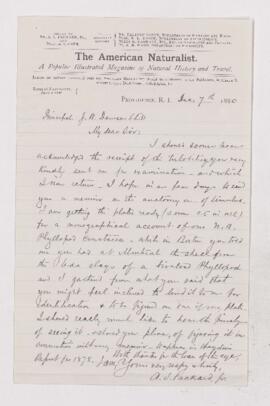 The American Naturalist.
A Popular Illustrated Magazine of Natural History and Travel.
PROVIDENCE, R. I. Dec. 7th 1880
Principal J. W. Dawson LLD
My dear Sir,
I should sooner have
acknowledged the receipt of the you very
kindly sent on for examination, and which
I now return. I hope in a few days to send
you a memoir on the anatomy of Limulus.
I am getting the plates ready (some 25 in all)
for a monographical account of our N. A.
Phyllopod Crustacea. While in Boston you told
me you had at Montreal the shell from
the Leda clays of a bivalved Phyllopod
and I gathered from what you said that
you might feel inclined to lend it to me for
identification & to be figured on one of my plates.
I should really much like to have the privilege
of seeing it and your of figuring it in
connection with my memoir in Hayden's
Report for 1878. With thanks for the loan of the
I am, Yours very respectfully,
A. S. Packard Jr.